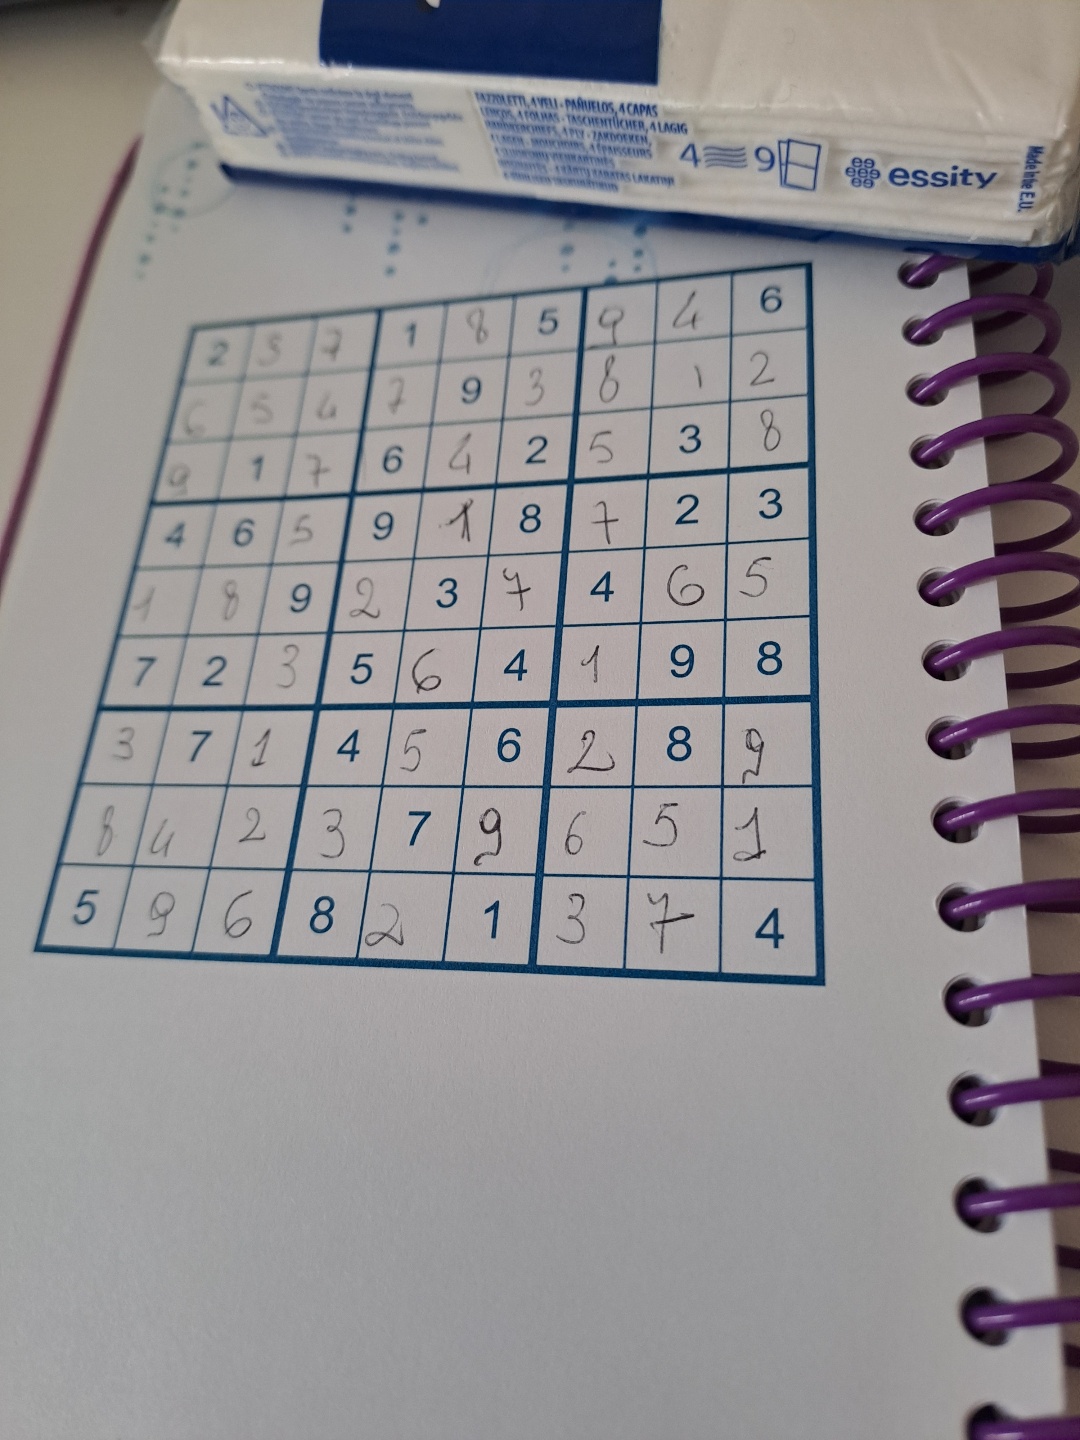 FAZZOLETTI, 4 VELI - PAÑUELOS, 4 CAPAS
LENÇOS, 4 FOLHAS - TASCHENTÜCHER, 4 LAGIG
4 9 essity
Made in the E.U.
2 3 7 1 8 5 9 4 6
6 5 4 7 9 3 8 1 2
9 1 7 6 4 2 5 3 8
4 6 5 9 1 8 7 2 3
1 8 9 2 3 7 4 6 5
7 2 3 5 6 4 1 9 8
3 7 1 4 5 6 2 8 9
8 4 2 3 7 9 6 5 1
5 9 6 8 2 1 3 7 4